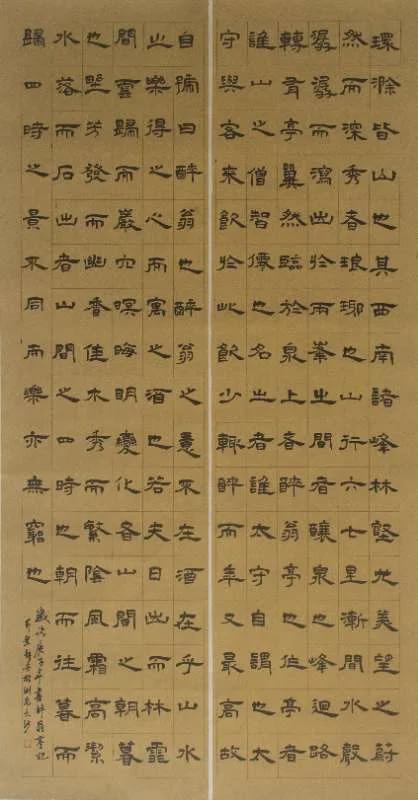 環滁皆山也其西南諸峰林壑尤美望之蔚
然而深秀者琅琊也山行六七里漸聞水聲
潺潺而瀉出於兩峯之間者釀泉也峰迴路
轉有亭翼然臨於泉上者醉翁亭也作亭者
誰山之僧智僊也名之者誰太守自謂也太
守與客來飲於此飲少輒醉而年又最高故
自號曰醉翁也醉翁之意不在酒在乎山水
之樂得之心而寓之酒也若夫日出而林霏
開雲歸而巖穴暝晦明變化者山間之朝暮
也野芳發而幽香佳木秀而繁陰風霜高潔
水落而石出者山間之四時也朝而往暮而
歸四時之景不同而樂亦無窮也
歲次庚子年書醉翁亭記